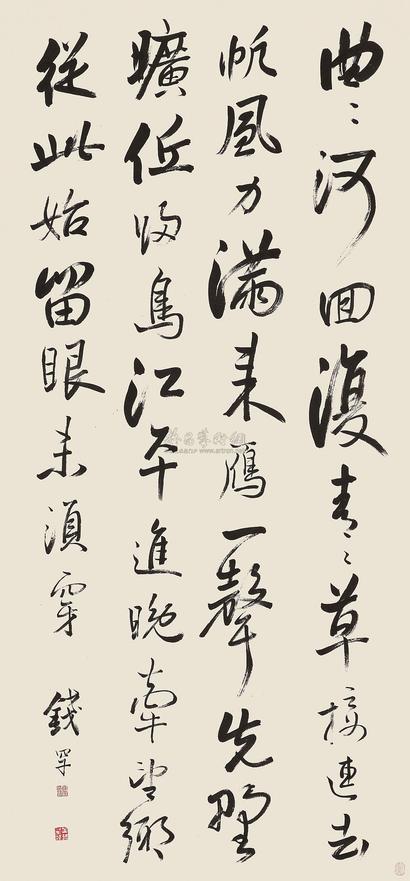 曲〻河回復青〻草接連去
帆風力滿來雁一聲先野
曠低歸鳥江平進晚牽望鄉
從此始留眼未須穿
錢罕